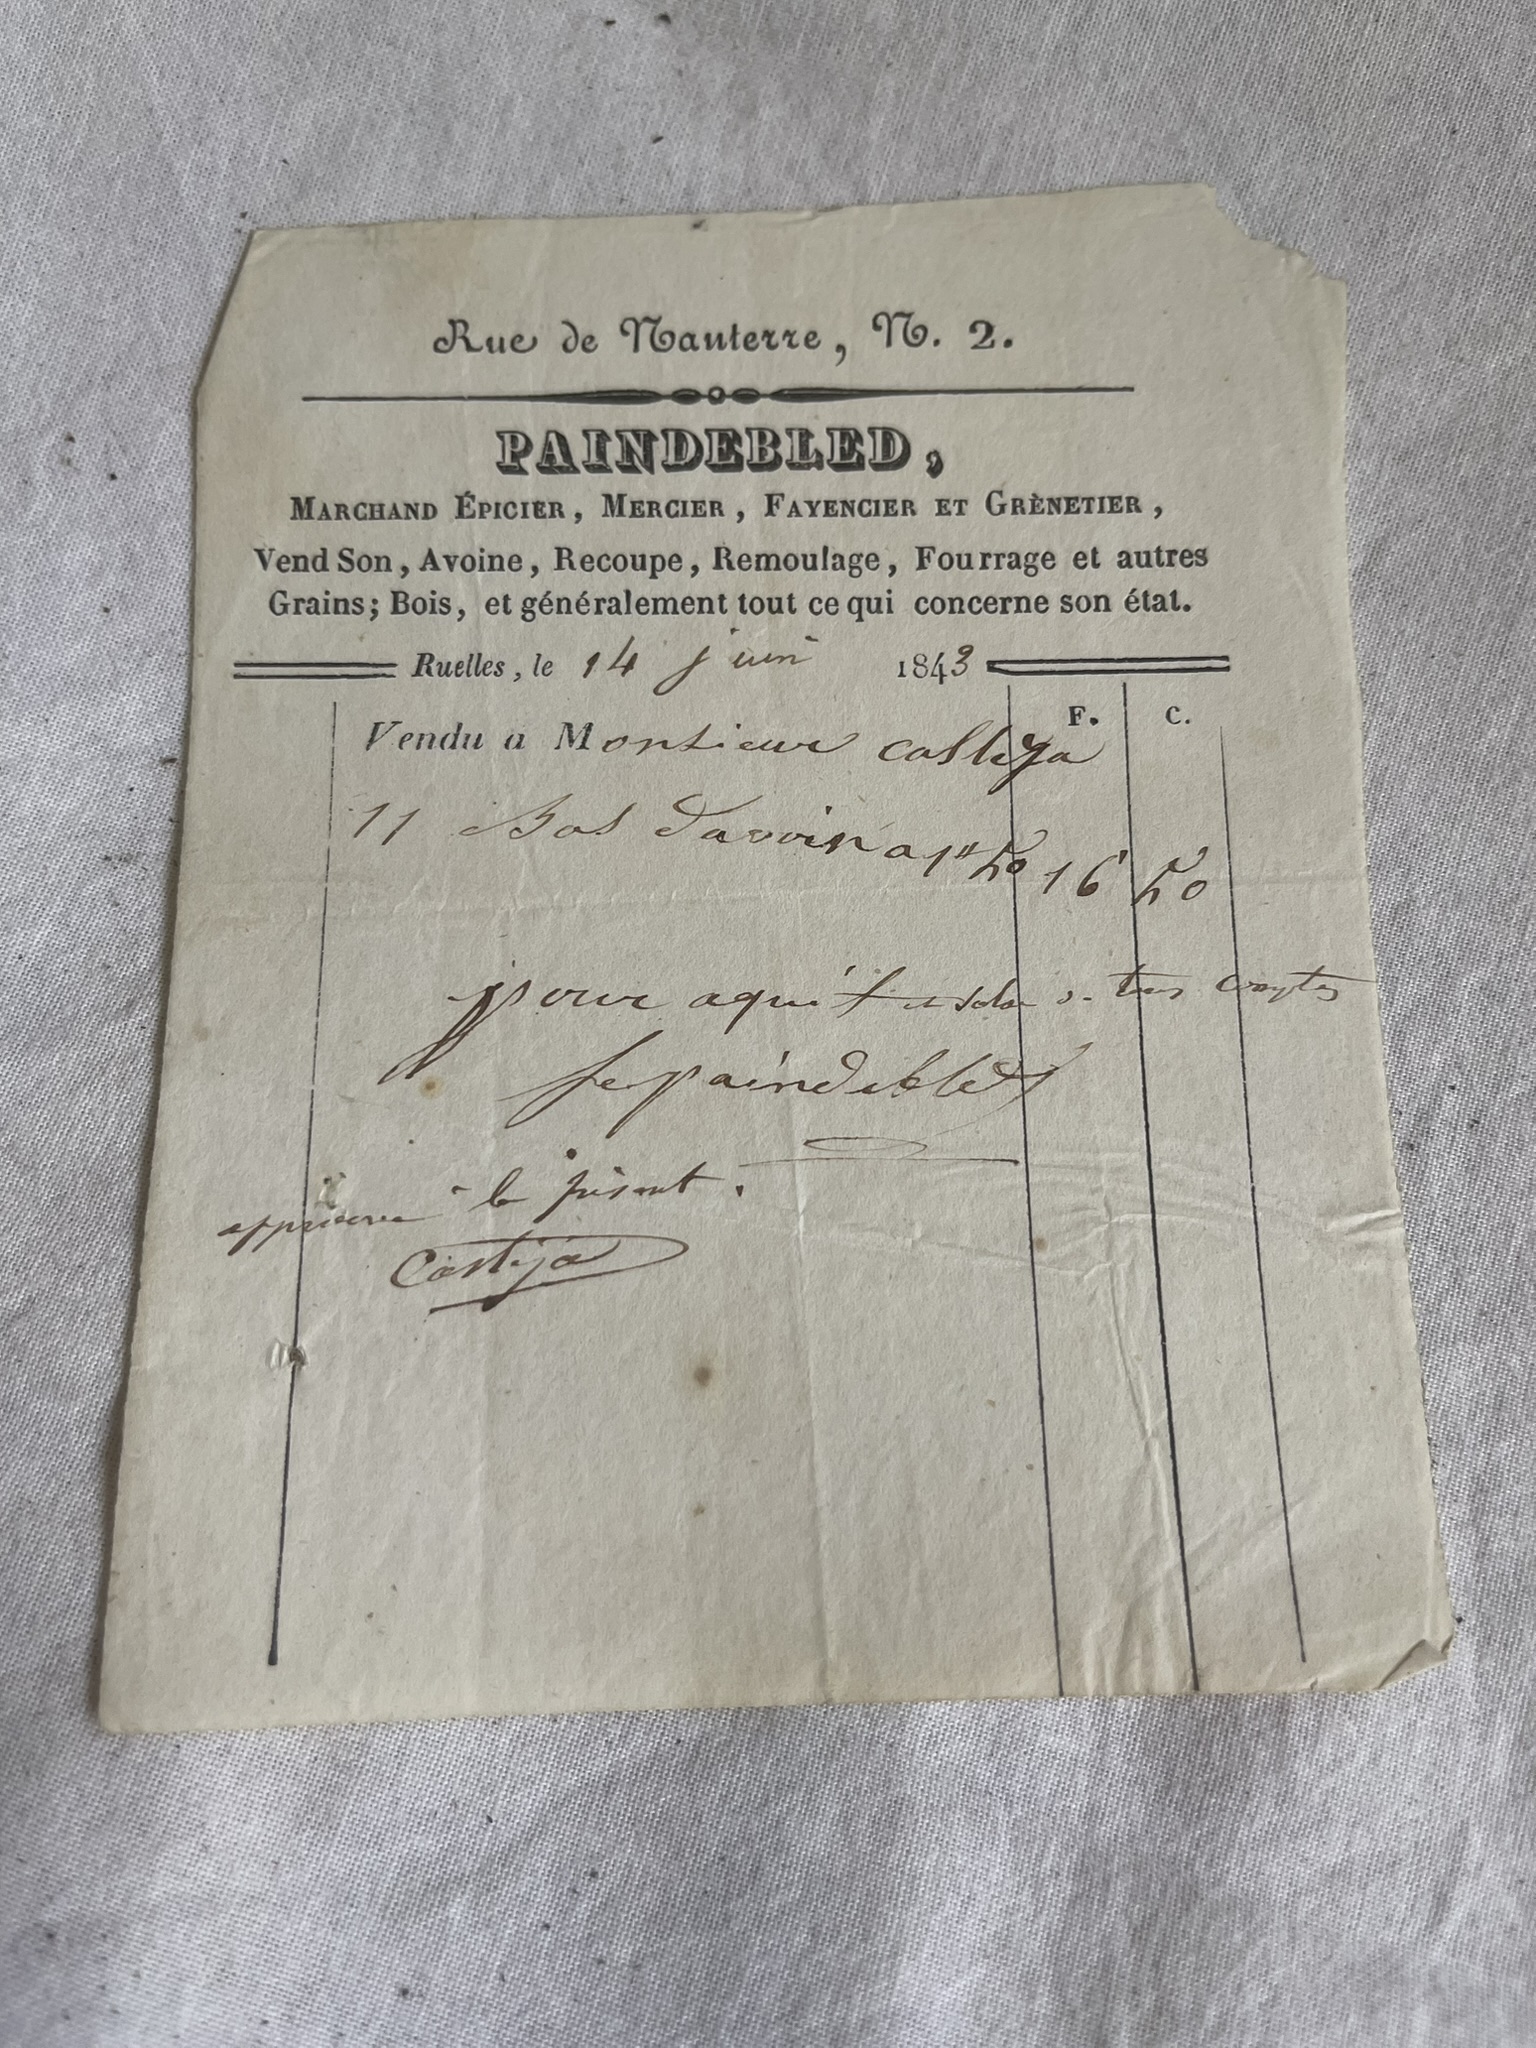 Rue de Nanterre, N. 2.
PAINDEBLED,
MARCHAND ÉPICIER, MERCIER, FAYENCIER ET GRÈNETIER,
Vend Son, Avoine, Recoupe, Remoulage, Fourrage et autres
Grains; Bois, et généralement tout ce qui concerne son état.
Ruelles, le 14 juin 1843
F. C.
Vendu a Monsieur castija
11 Bos davoin a 1# 50 16 50
pour aquit et solde de tous comptes
fe paindebled
approuvé le présent.
Castija